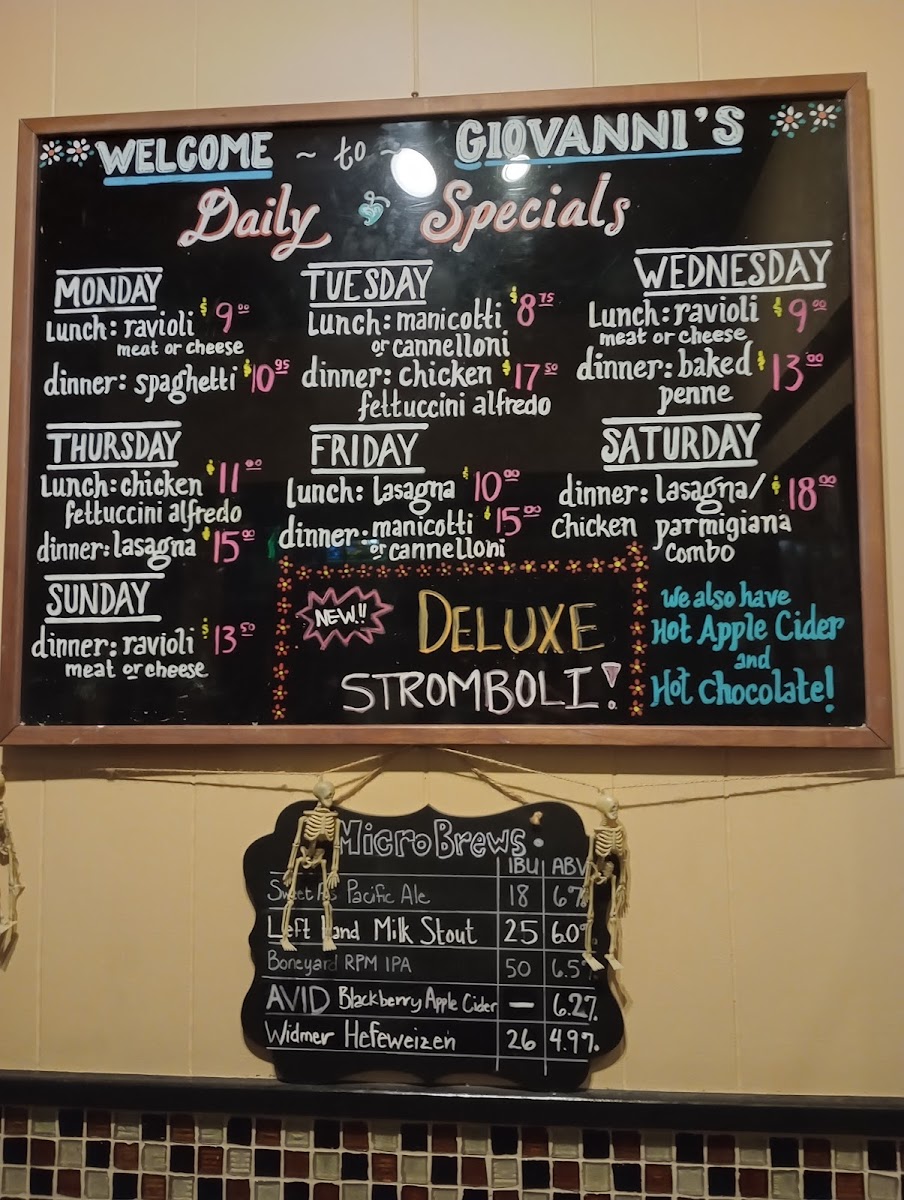 WELCOME ~ to ~ GIOVANNI'S
Daily Specials
MONDAY
Lunch: ravioli $9.00
meat or cheese
dinner: spaghetti $10.95
TUESDAY
Lunch: manicotti $8.75
or cannelloni
dinner: chicken $17.50
fettuccini alfredo
WEDNESDAY
Lunch: ravioli $9.00
meat or cheese
dinner: baked $13.00
penne
THURSDAY
Lunch: chicken $11.00
fettuccini alfredo
dinner: lasagna $15.00
FRIDAY
Lunch: lasagna $10.00
dinner: manicotti $15.00
or cannelloni
SATURDAY
dinner: lasagna/ $18.00
Chicken parmigiana
combo
SUNDAY
dinner: ravioli $13.50
meat or cheese
NEW!!
DELUXE
STROMBOLI!
We also have
Hot Apple Cider
and
Hot Chocolate!
MicroBrews
IBU ABV
Sweet As Pacific Ale 18 6%
Left Hand Milk Stout 25 6.0%
Boneyard RPM IPA 50 6.5%
AVID Blackberry Apple Cider — 6.2%
Widmer Hefeweizen 26 4.9%